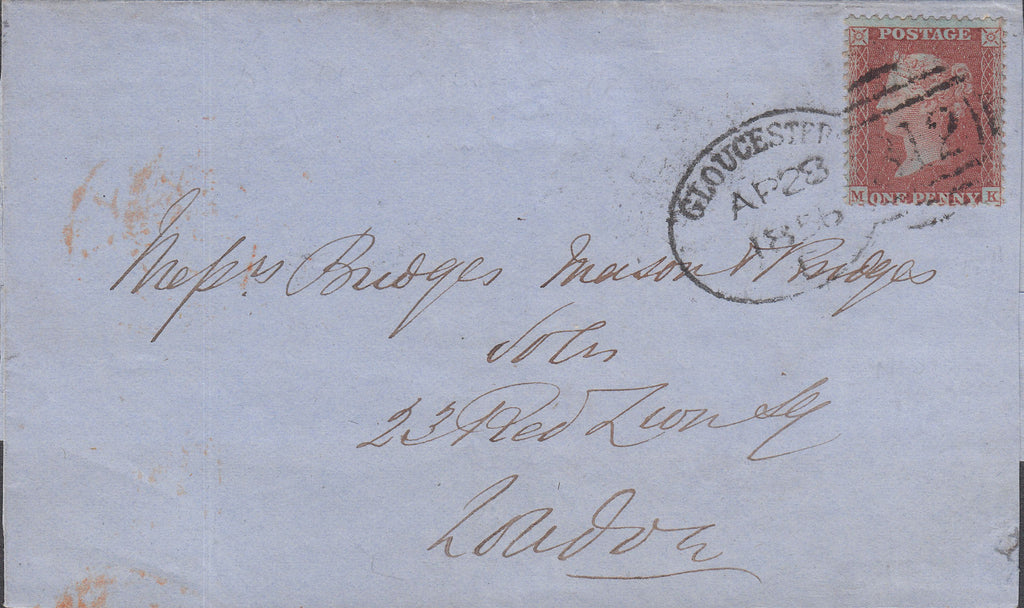 POSTAGE
312
M ONE PENNY K
GLOUCESTER
AP 28
1856
Messrs Bridges Mason & Bridges
Solrs
23 Red Lion Sq
London